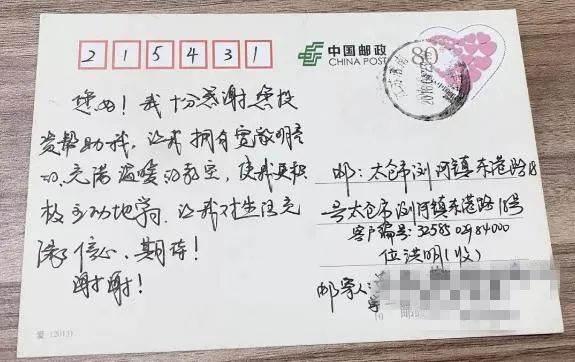 215431
中国邮政
CHINA POST
80
您好！我十分感谢您投
资帮助我，让我拥有宽敞明亮
的、充满温暖的教室，使我更积
极主动地学习，让我对生活充
满了信心、期待！
谢谢！
邮：太仓市浏河镇东港路18
号太仓市浏河镇东港路18号
客户编号：32585 02984000
位洪明（收）
邮寄人：
爱（2013）